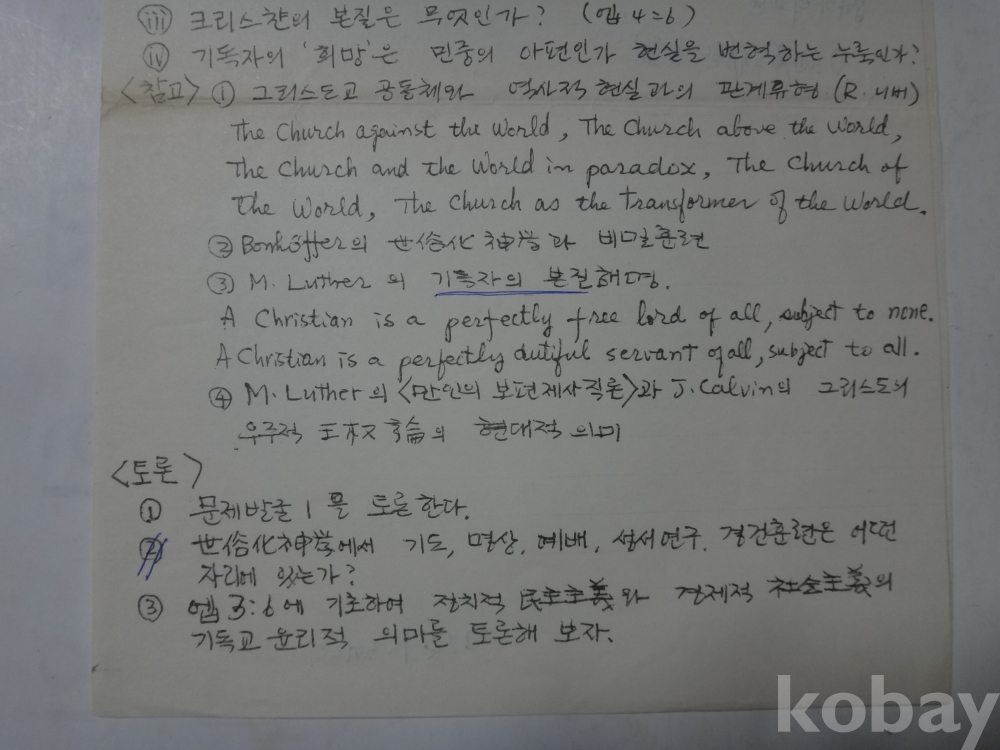 ⅲ 크리스챤의 본질은 무엇인가? (엡 4=6)
ⅳ 기독자의 '희망'은 민중의 아편인가 현실을 변혁하는 누룩인가?
<참고> ① 그리스도교 공동체와 역사적 현실과의 관계류형 (R. 니버)
The Church against the World, The Church above the World,
The Church and the World in paradox, The Church of
the World, The Church as the transformer of the World.
② Bonhöffer의 世俗化 神学과 비밀훈련
③ M. Luther의 기독자의 본질해명.
A Christian is a perfectly free lord of all, subject to none.
A Christian is a perfectly dutiful servant of all, subject to all.
④ M. Luther의 <만인의 보편제사직론>과 J. Calvin의 그리스도의
우주적 王权論의 현대적 의미
<토론>
① 문제발굴 1 을 토론한다.
② 世俗化神学에서 기도, 명상, 예배, 성서연구. 경건훈련은 어떤
자리에 있는가?
③ 엡 3:6에 기초하여 정치적 民主主義와 경제적 社会主義의
기독교 윤리적 의미를 토론해 보자.
kobay